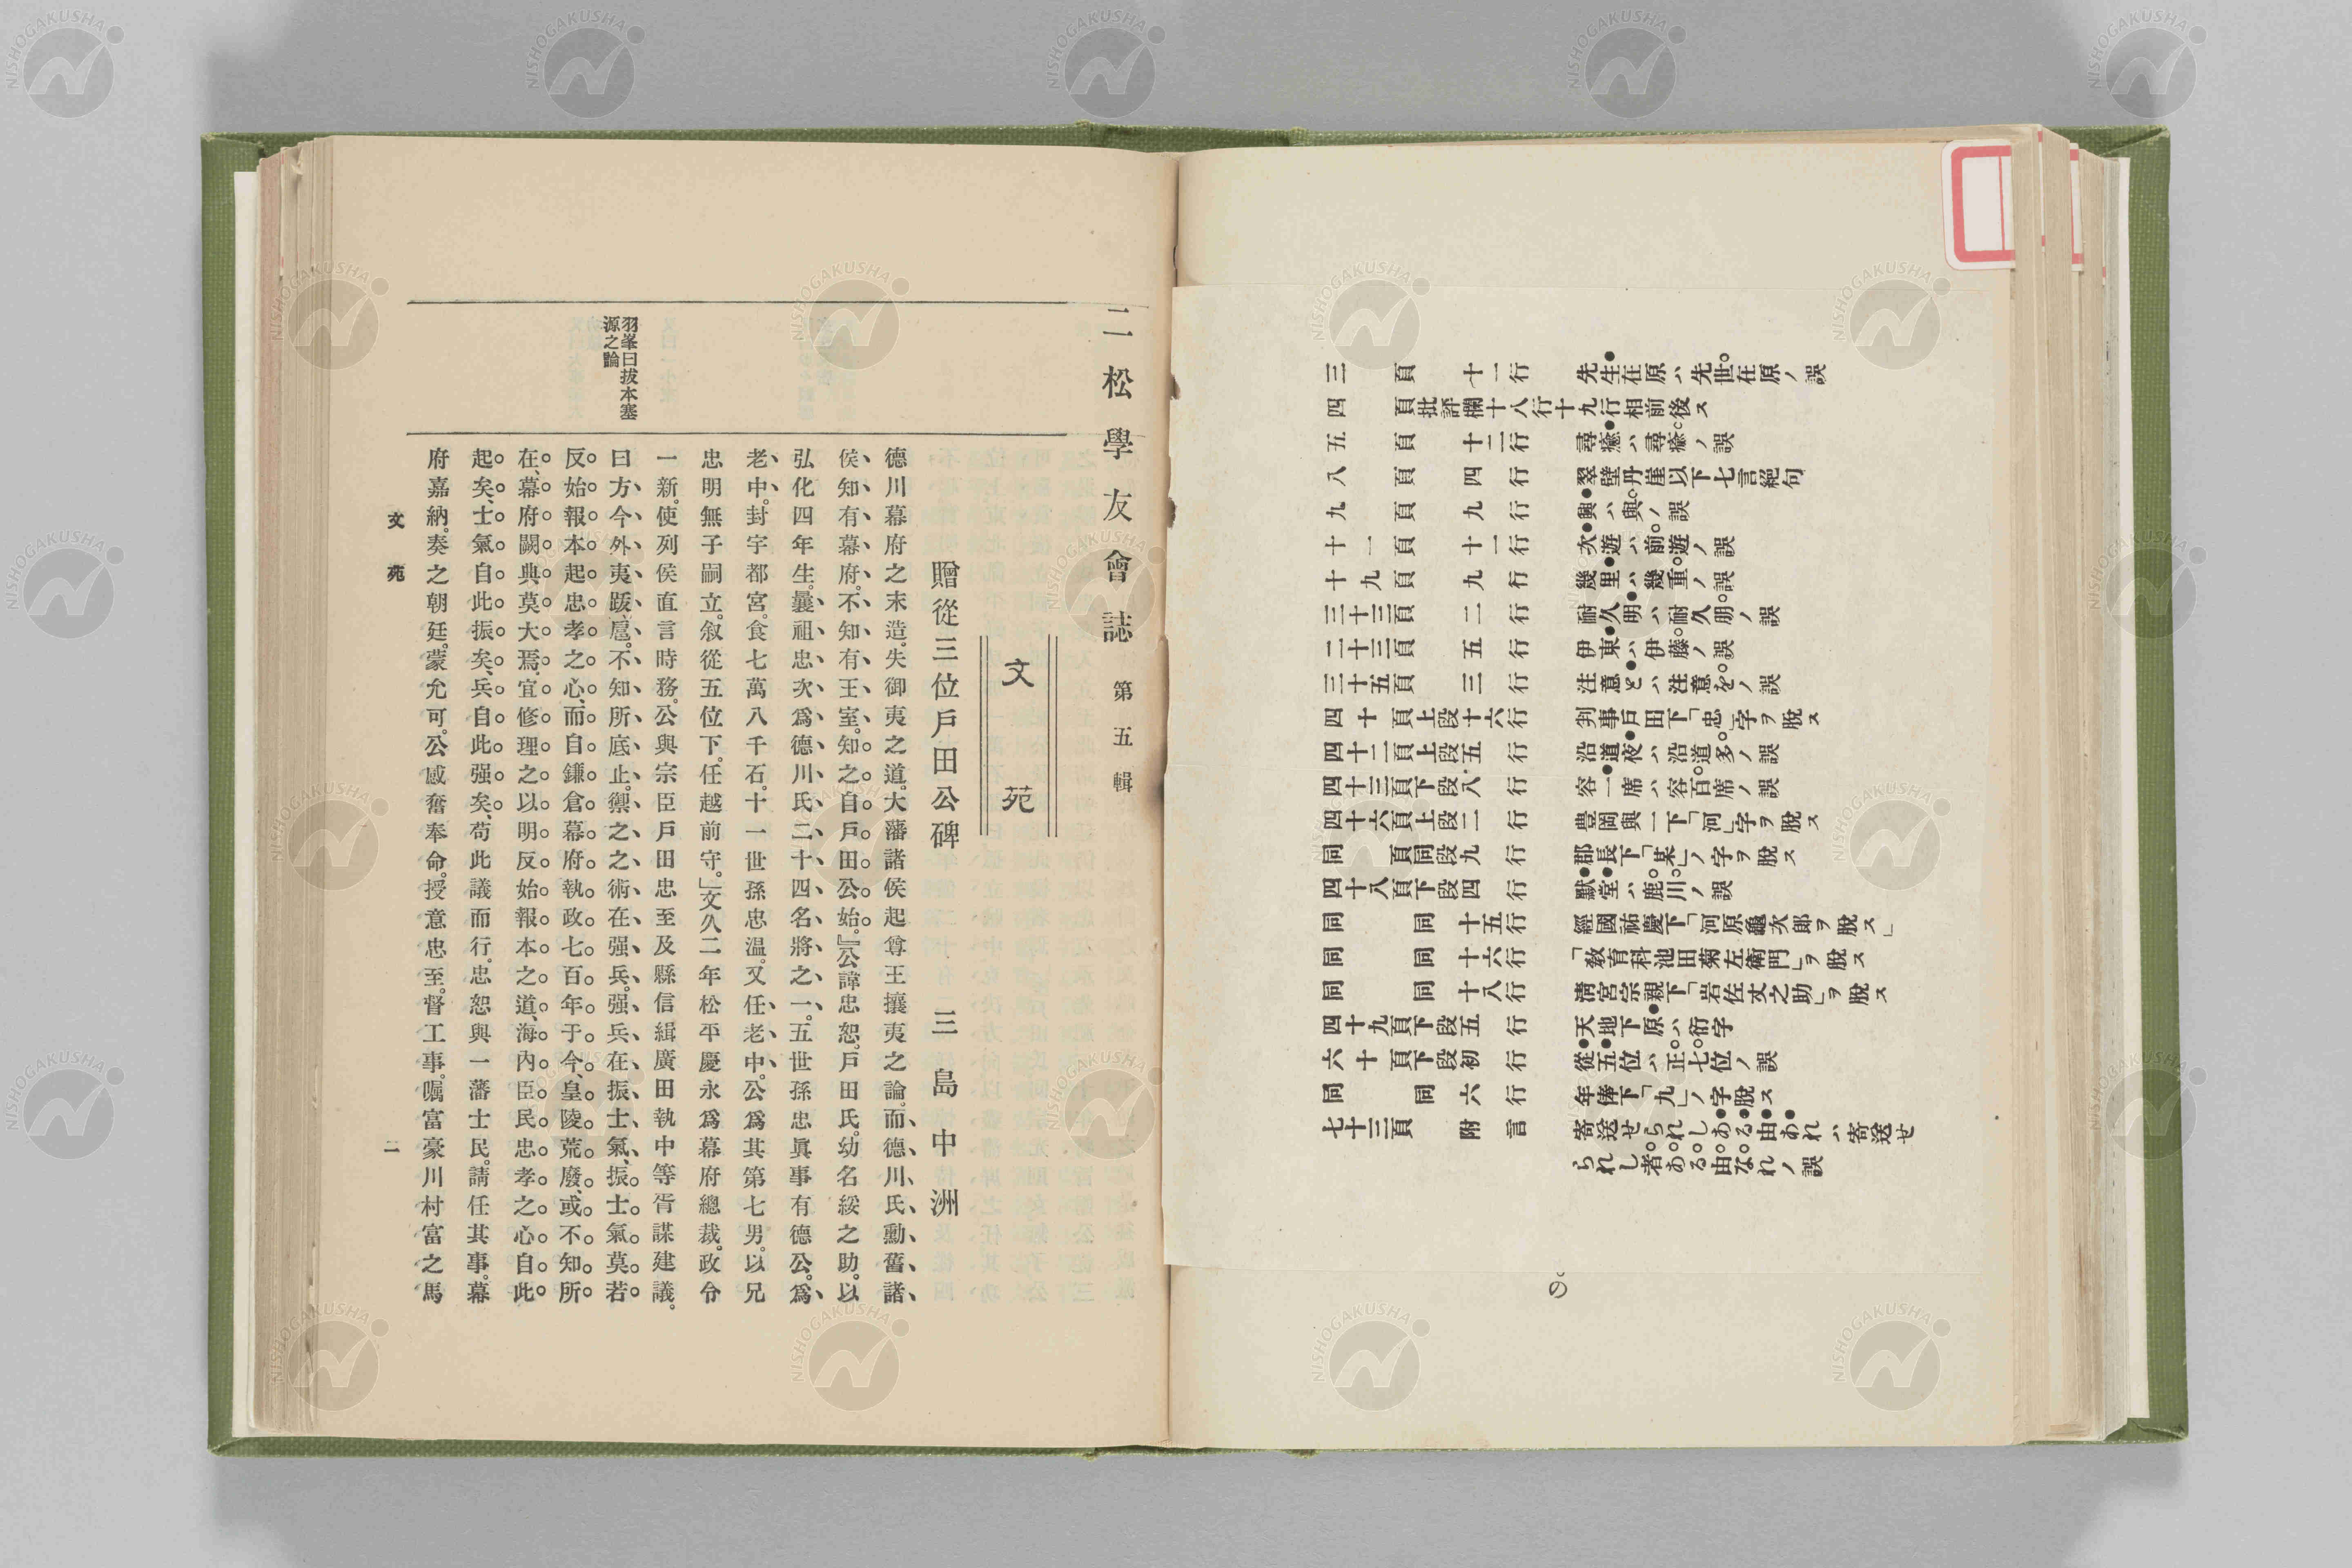 三頁 十一行 先生在原ハ先世在原ノ誤
四頁批評欄十八行十九行相前後ス
五頁 十二行 尋癒ハ尋瘉ノ誤
八頁 四行 翠壁丹崖以下七言絕句
九頁 九行 興ハ與ノ誤
十一頁 十一行 次遊ハ前遊ノ誤
十九頁 九行 幾里ハ幾重ノ誤
三十三頁 二行 耐久明ハ耐久朋ノ誤
二十三頁 五行 伊東ハ伊藤ノ誤
三十五頁 三行 注意とハ注意をノ誤
四十頁上段十六行 判事戸田下「忠」字ヲ脫ス
四十二頁上段五行 沿道夜ハ沿道多ノ誤
四十三頁下段八行 容一席ハ容百席ノ誤
四十六頁上段二行 豊岡與一下「河」字ヲ脫ス
同頁同段九行 郡長下「某」ノ字ヲ脫ス
四十八頁下段四行 默堂ハ鹿川ノ誤
同 同 十五行 經國祐慶下「河原龜次郎ヲ脫ス」
同 同 十六行 「教育科池田菊左衛門」ヲ脫ス
同 同 十八行 淸宮宗親下「岩佐丈之助」ヲ脫ス
四十九頁下段五行 天地下原ハ衍字
六十頁下段初行 從五位ハ正七位ノ誤
同 同 六行 年俸下「九」ノ字脫ス
七十三頁 附言 寄送せられしある由あれハ寄送せ
られし者ある由なれノ誤
の
二松學友會誌 第五輯
文苑
贈從三位戶田公碑 三島中洲
德川幕府之末造。失御夷之道。大藩諸侯起尊王攘夷之論。而、德、川、氏、勳、舊、諸、
侯、知、有、幕、府、不、知、有、王、室、知。之。自。戶。田。公。始。』公諱忠恕。戶田氏。幼名綏之助。以
弘化四年生。曩祖、忠、次、爲、德、川、氏、二、十、四、名、將、之、一、五世孫忠眞事有德公。爲、
老、中、封宇都宮。食七萬八千石。十一世孫忠溫。又任、老、中、公爲其第七男。以兄
忠明無子嗣立。叙從五位下。任越前守。」文久二年松平慶永爲幕府總裁。政令
一新。使列侯直言時務。公與宗臣戶田忠至及縣信緝廣田執中等胥謀建議。
曰方、今、外、夷、跋、扈、不、知、所、底、止、禦、之、之、術、在、强、兵、强、兵、在、振、士、氣、振。士。氣。莫。若。
反。始。報。本。起。忠。孝。之。心。而。自。鎌。倉。幕。府。執。政。七。百。年。于。今。皇。陵。荒。廢。或。不。知。所。
在。幕。府。闕。典。莫。大。焉。宜。修。理。之。以。明。反。始。報。本。之。道。海。內。臣。民。忠。孝。之。心。自。此。
起。矣。士。氣。自。此。振。矣。兵。自。此。强。矣。苟此議而行。忠恕與一藩士民。請任其事。幕
府嘉納。奏之朝廷。蒙允可。公感奮奉命。授意忠至。督工事。囑富豪川村富之馬
羽峯曰拔本塞
源之論
文苑
二